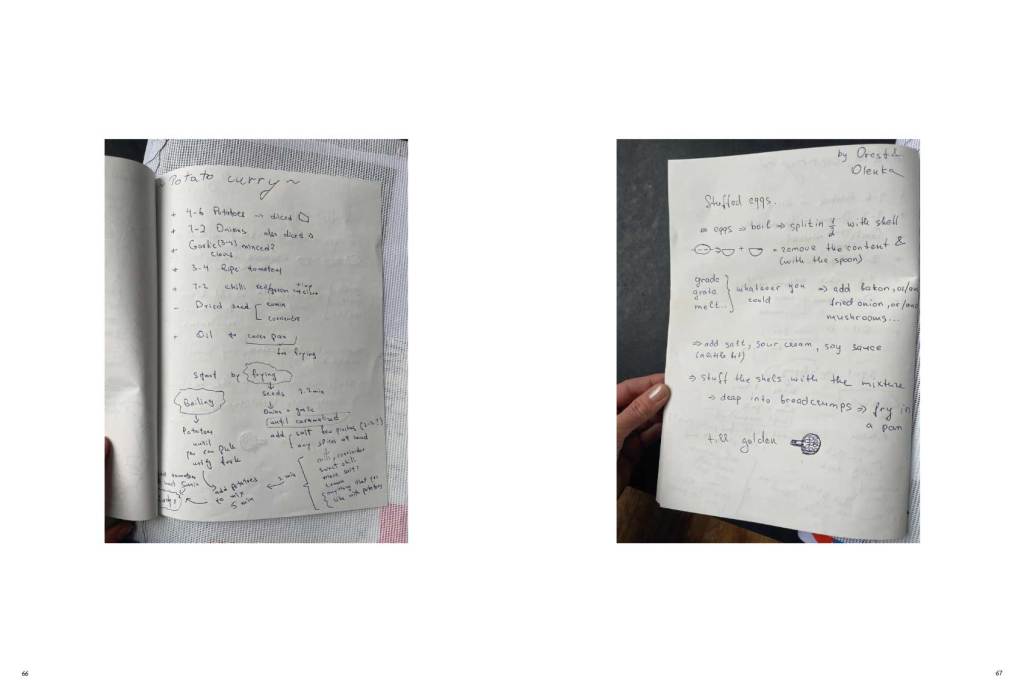 Potato curry ~
+ 4-6 Potatoes → diced
+ 1-2 Onions also diced
+ Garlic (3-4) minced?
+ 3-4 Ripe tomatoes
+ 1-2 chilli
- Dried seed
cumin
+ Oil to cover pan
for frying
start by frying
seeds 1-2 min
Boiling
Onion + garlic
until caramelised
Potatoes
until
you can
with fork
add salt few pinches
any spices at hand
more salt?
like with potatoes
2 min
add potatoes
to mix
5 min
66
by Orest &
Olenka
Stuffed eggs.
eggs ⇒ boil ⇒ split in 1/2 with shell
⇒ + = remove the content &
(with the spoon)
grade
grate
melt..
whatever you
could
⇒ add bakon, or/and
fried onion, or/and
mushrooms...
⇒ add salt, sour cream, soy sauce
(a little bit)
⇒ stuff the shels with the mixture
⇒ deap into breadcrumps ⇒ fry in
a pan
till golden
67